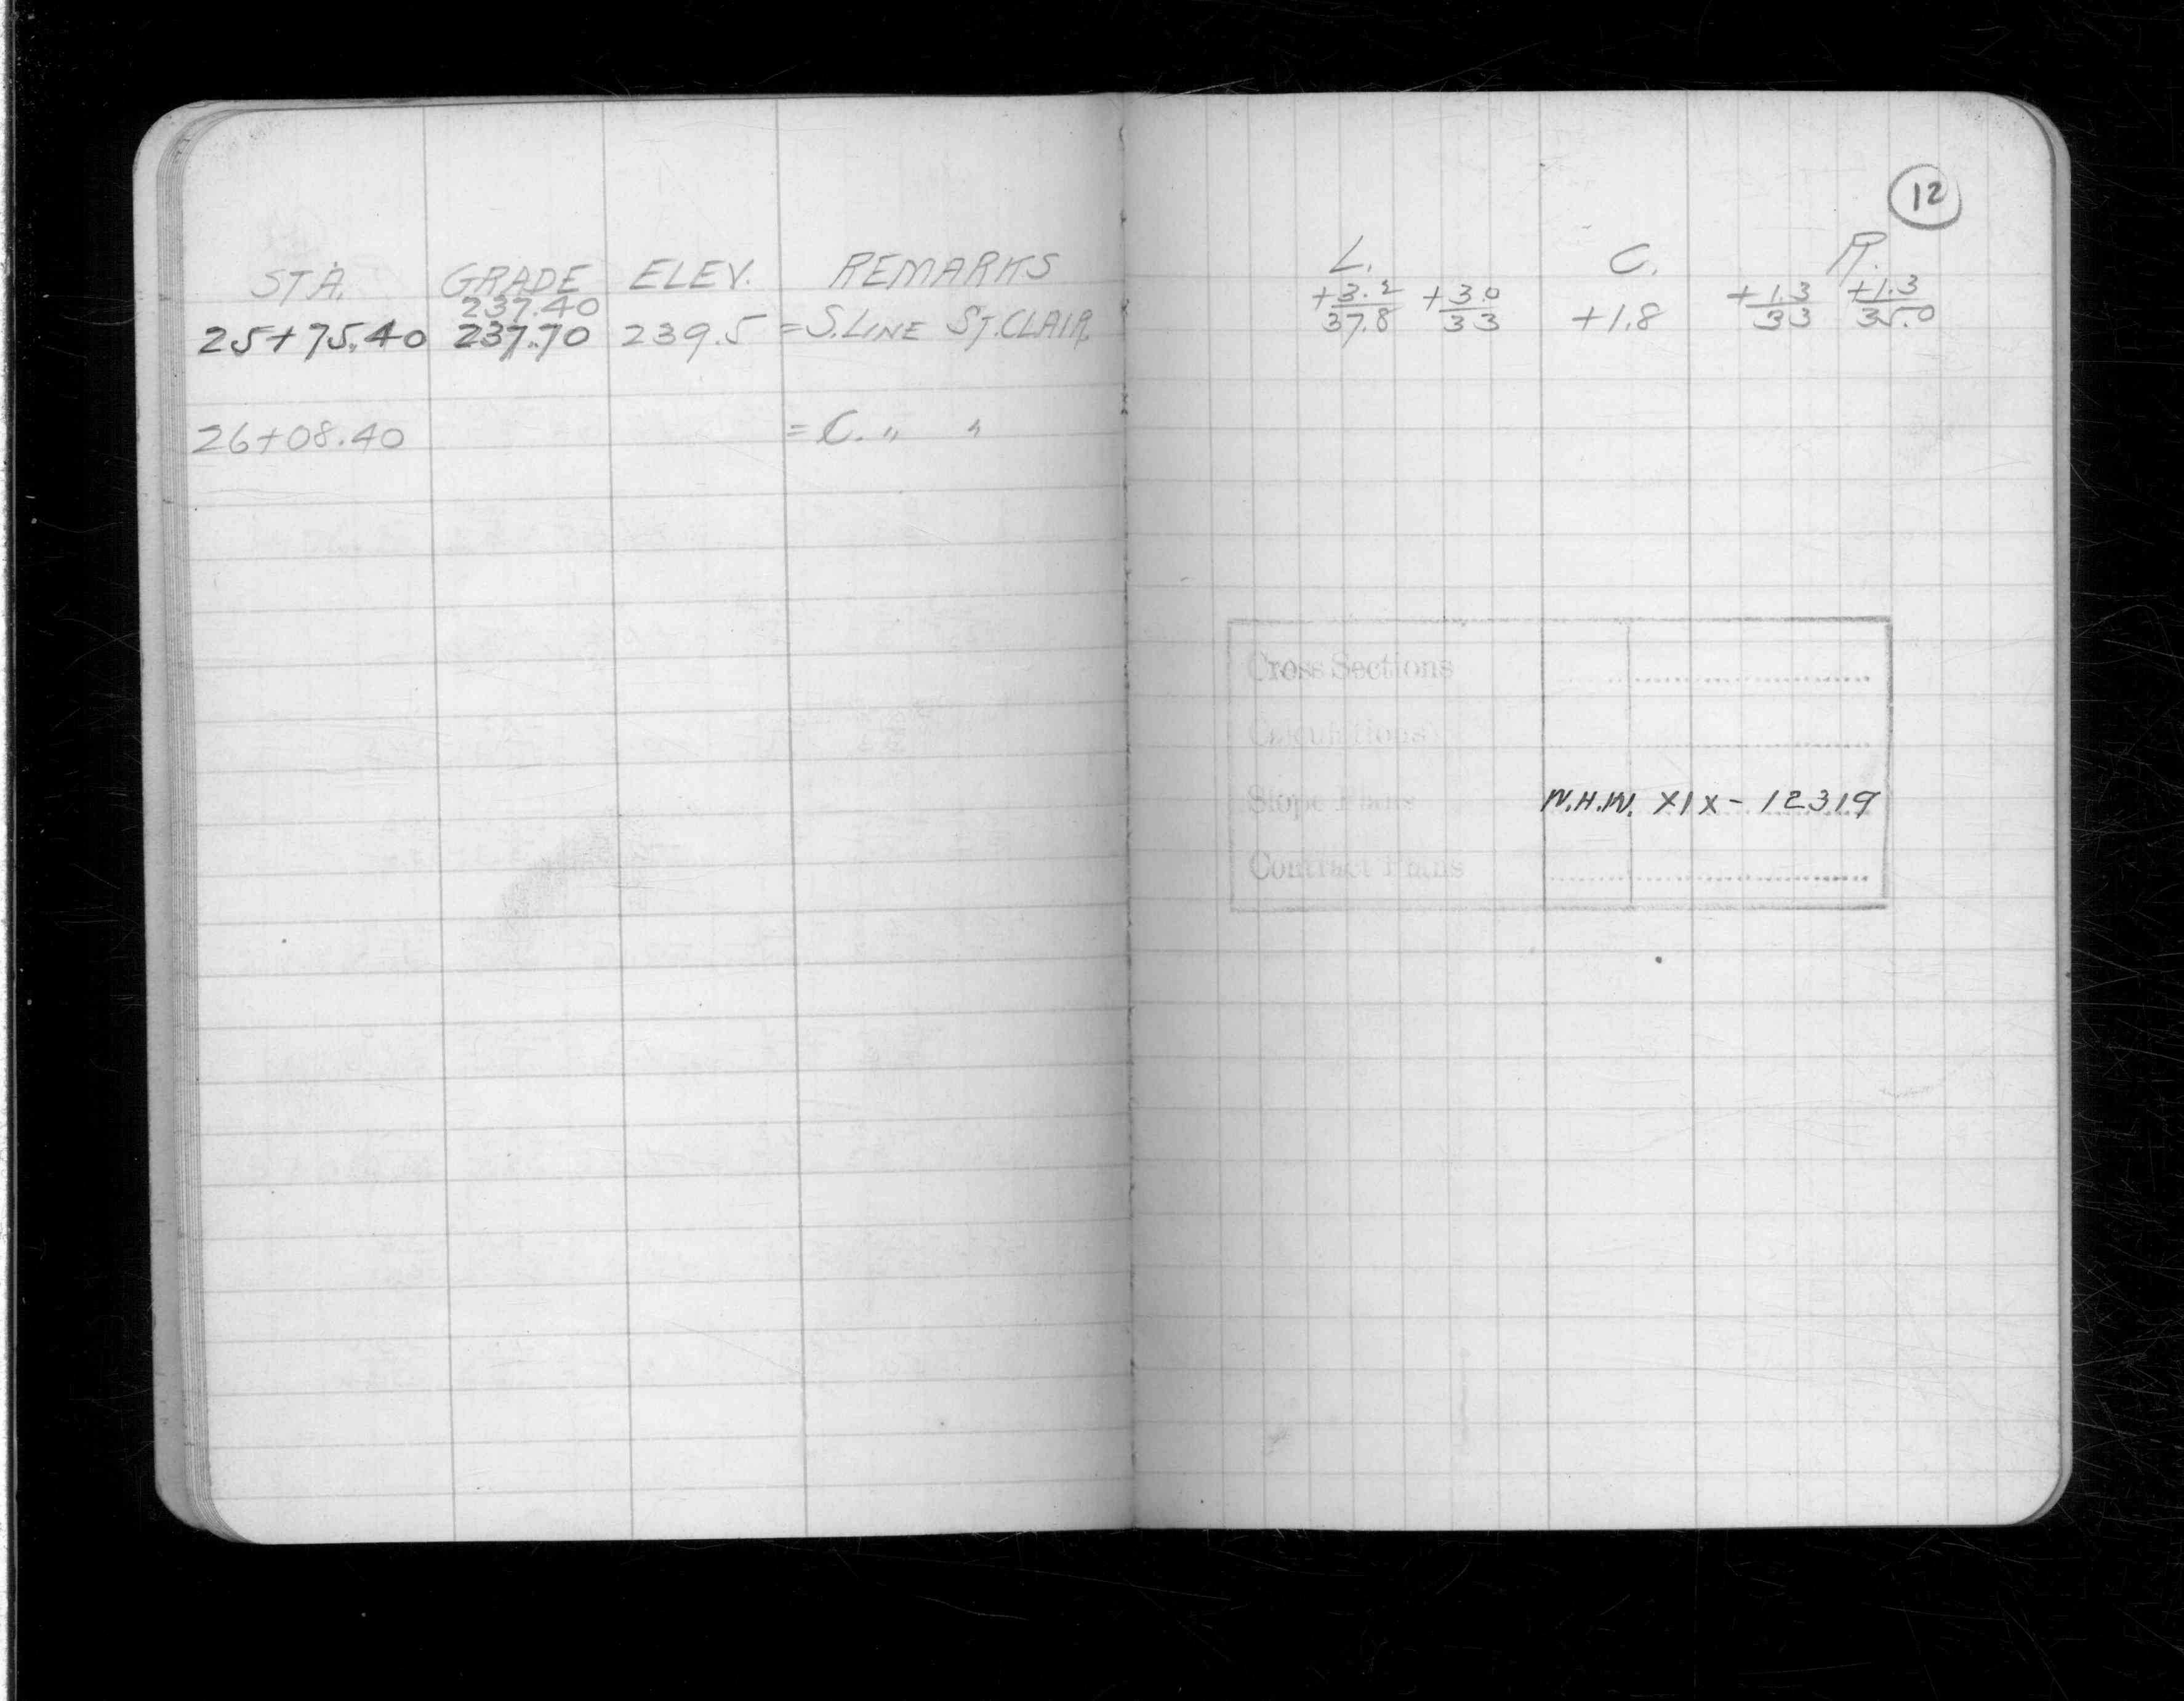 12
STA. GRADE ELEV. REMARKS L. C. R.
237.40 +3.2 +3.0 +1.3 +1.3
25+75.40 237.70 239.5 =S.LINE ST.CLAIR. 37.8 33 +1.8 33 35.0
26+08.40 =C. " "
Cross Sections
Calculations
Slope Plans W.H.W. XIX - 12319
Contract Plans